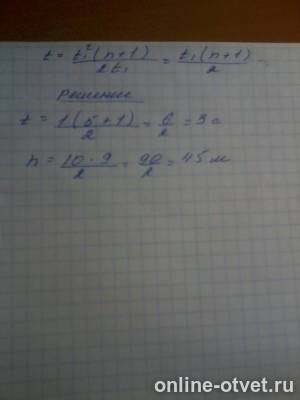 t = t₁²(n+1)/2t₁ = t₁(n+1)/2
Решение
t = 1(5+1)/2 = 6/2 = 3 с
h = 10·9/2 = 90/2 = 45 м
online-otvet.ru